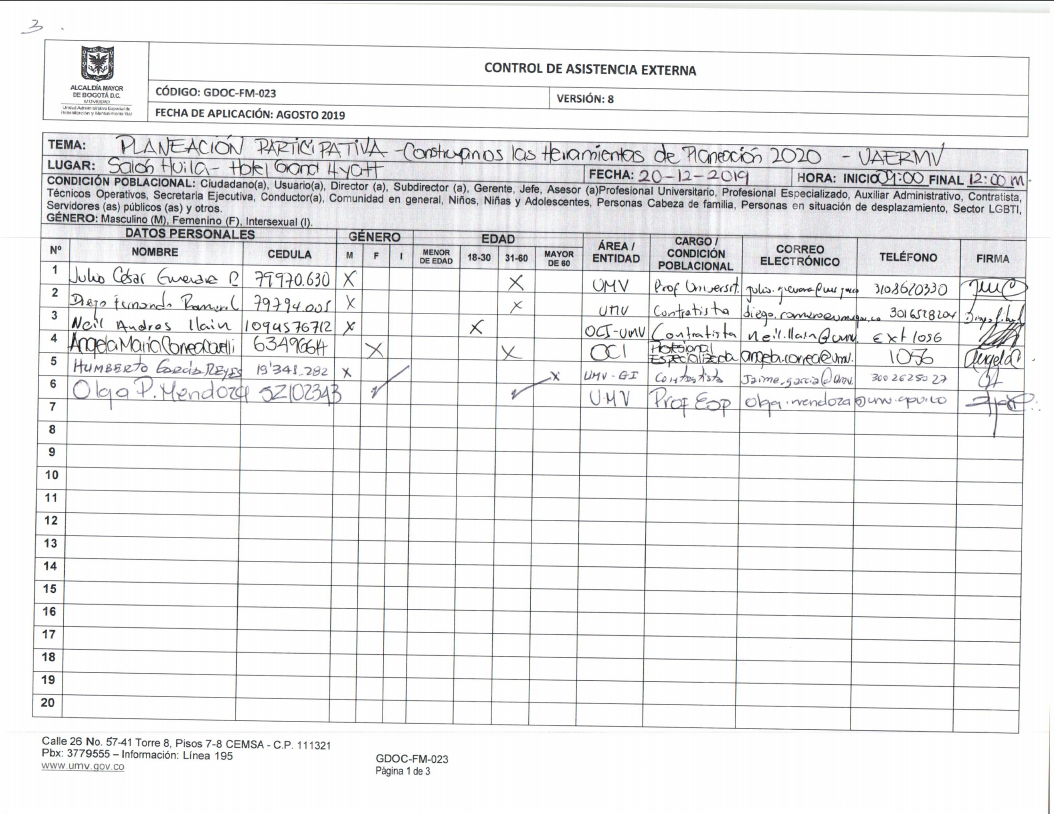 3.
ALCALDÍA MAYOR
DE BOGOTÁ D.C.
MOVILIDAD
Unidad Administrativa Especial de
Rehabilitación y Mantenimiento Vial
CONTROL DE ASISTENCIA EXTERNA
CÓDIGO: GDOC-FM-023
VERSIÓN: 8
FECHA DE APLICACIÓN: AGOSTO 2019
TEMA: PLANEACIÓN PARTICIPATIVA - Construyamos las Herramientas de Planeación 2020 - UAERMV
LUGAR: Salón Huila - Hotel Grand Hyatt FECHA: 20-12-2019 HORA: INICIO 09:00 FINAL 12:00 m
CONDICIÓN POBLACIONAL: Ciudadano(a), Usuario(a), Director (a), Subdirector (a), Gerente, Jefe, Asesor (a)Profesional Universitario, Profesional Especializado, Auxiliar Administrativo, Contratista,
Técnicos Operativos, Secretaria Ejecutiva, Conductor(a), Comunidad en general, Niños, Niñas y Adolescentes, Personas Cabeza de familia, Personas en situación de desplazamiento, Sector LGBTI,
Servidores (as) públicos (as) y otros.
GÉNERO: Masculino (M), Femenino (F), Intersexual (I).
DATOS PERSONALES GÉNERO EDAD
Nº NOMBRE CEDULA M F I MENOR DE EDAD 18-30 31-60 MAYOR DE 60 ÁREA / ENTIDAD CARGO / CONDICIÓN POBLACIONAL CORREO ELECTRÓNICO TELÉFONO FIRMA
1 Julio César 79970.630 X X UMV Prof Universit. 3103620330
2 Diego Fernando 79794.005 X X UMV Contratista
3 Neil Andres Llain 1094576712 X X OCI-UMV Contratista neil.llain@umv. Ext 1056
4 Angela María X X OCI Profesional Especializada 1056
5 HUMBERTO García Reyes 19'341.782 X X UMV-GI Contratista Jaime.garcia@umv. 3002625027
6 Olga P. Mendoza 52102343 ✓ ✓ UMV Prof Esp olga.mendoza@umv.gov.co
7
8
9
10
11
12
13
14
15
16
17
18
19
20
Calle 26 No. 57-41 Torre 8, Pisos 7-8 CEMSA - C.P. 111321
Pbx: 3779555 – Información: Línea 195
www.umv.gov.co
GDOC-FM-023
Página 1 de 3